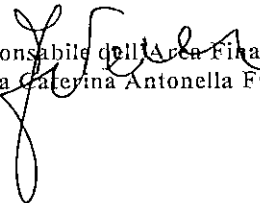 onsabile dell'Area Fina
a Caterina Antonella F